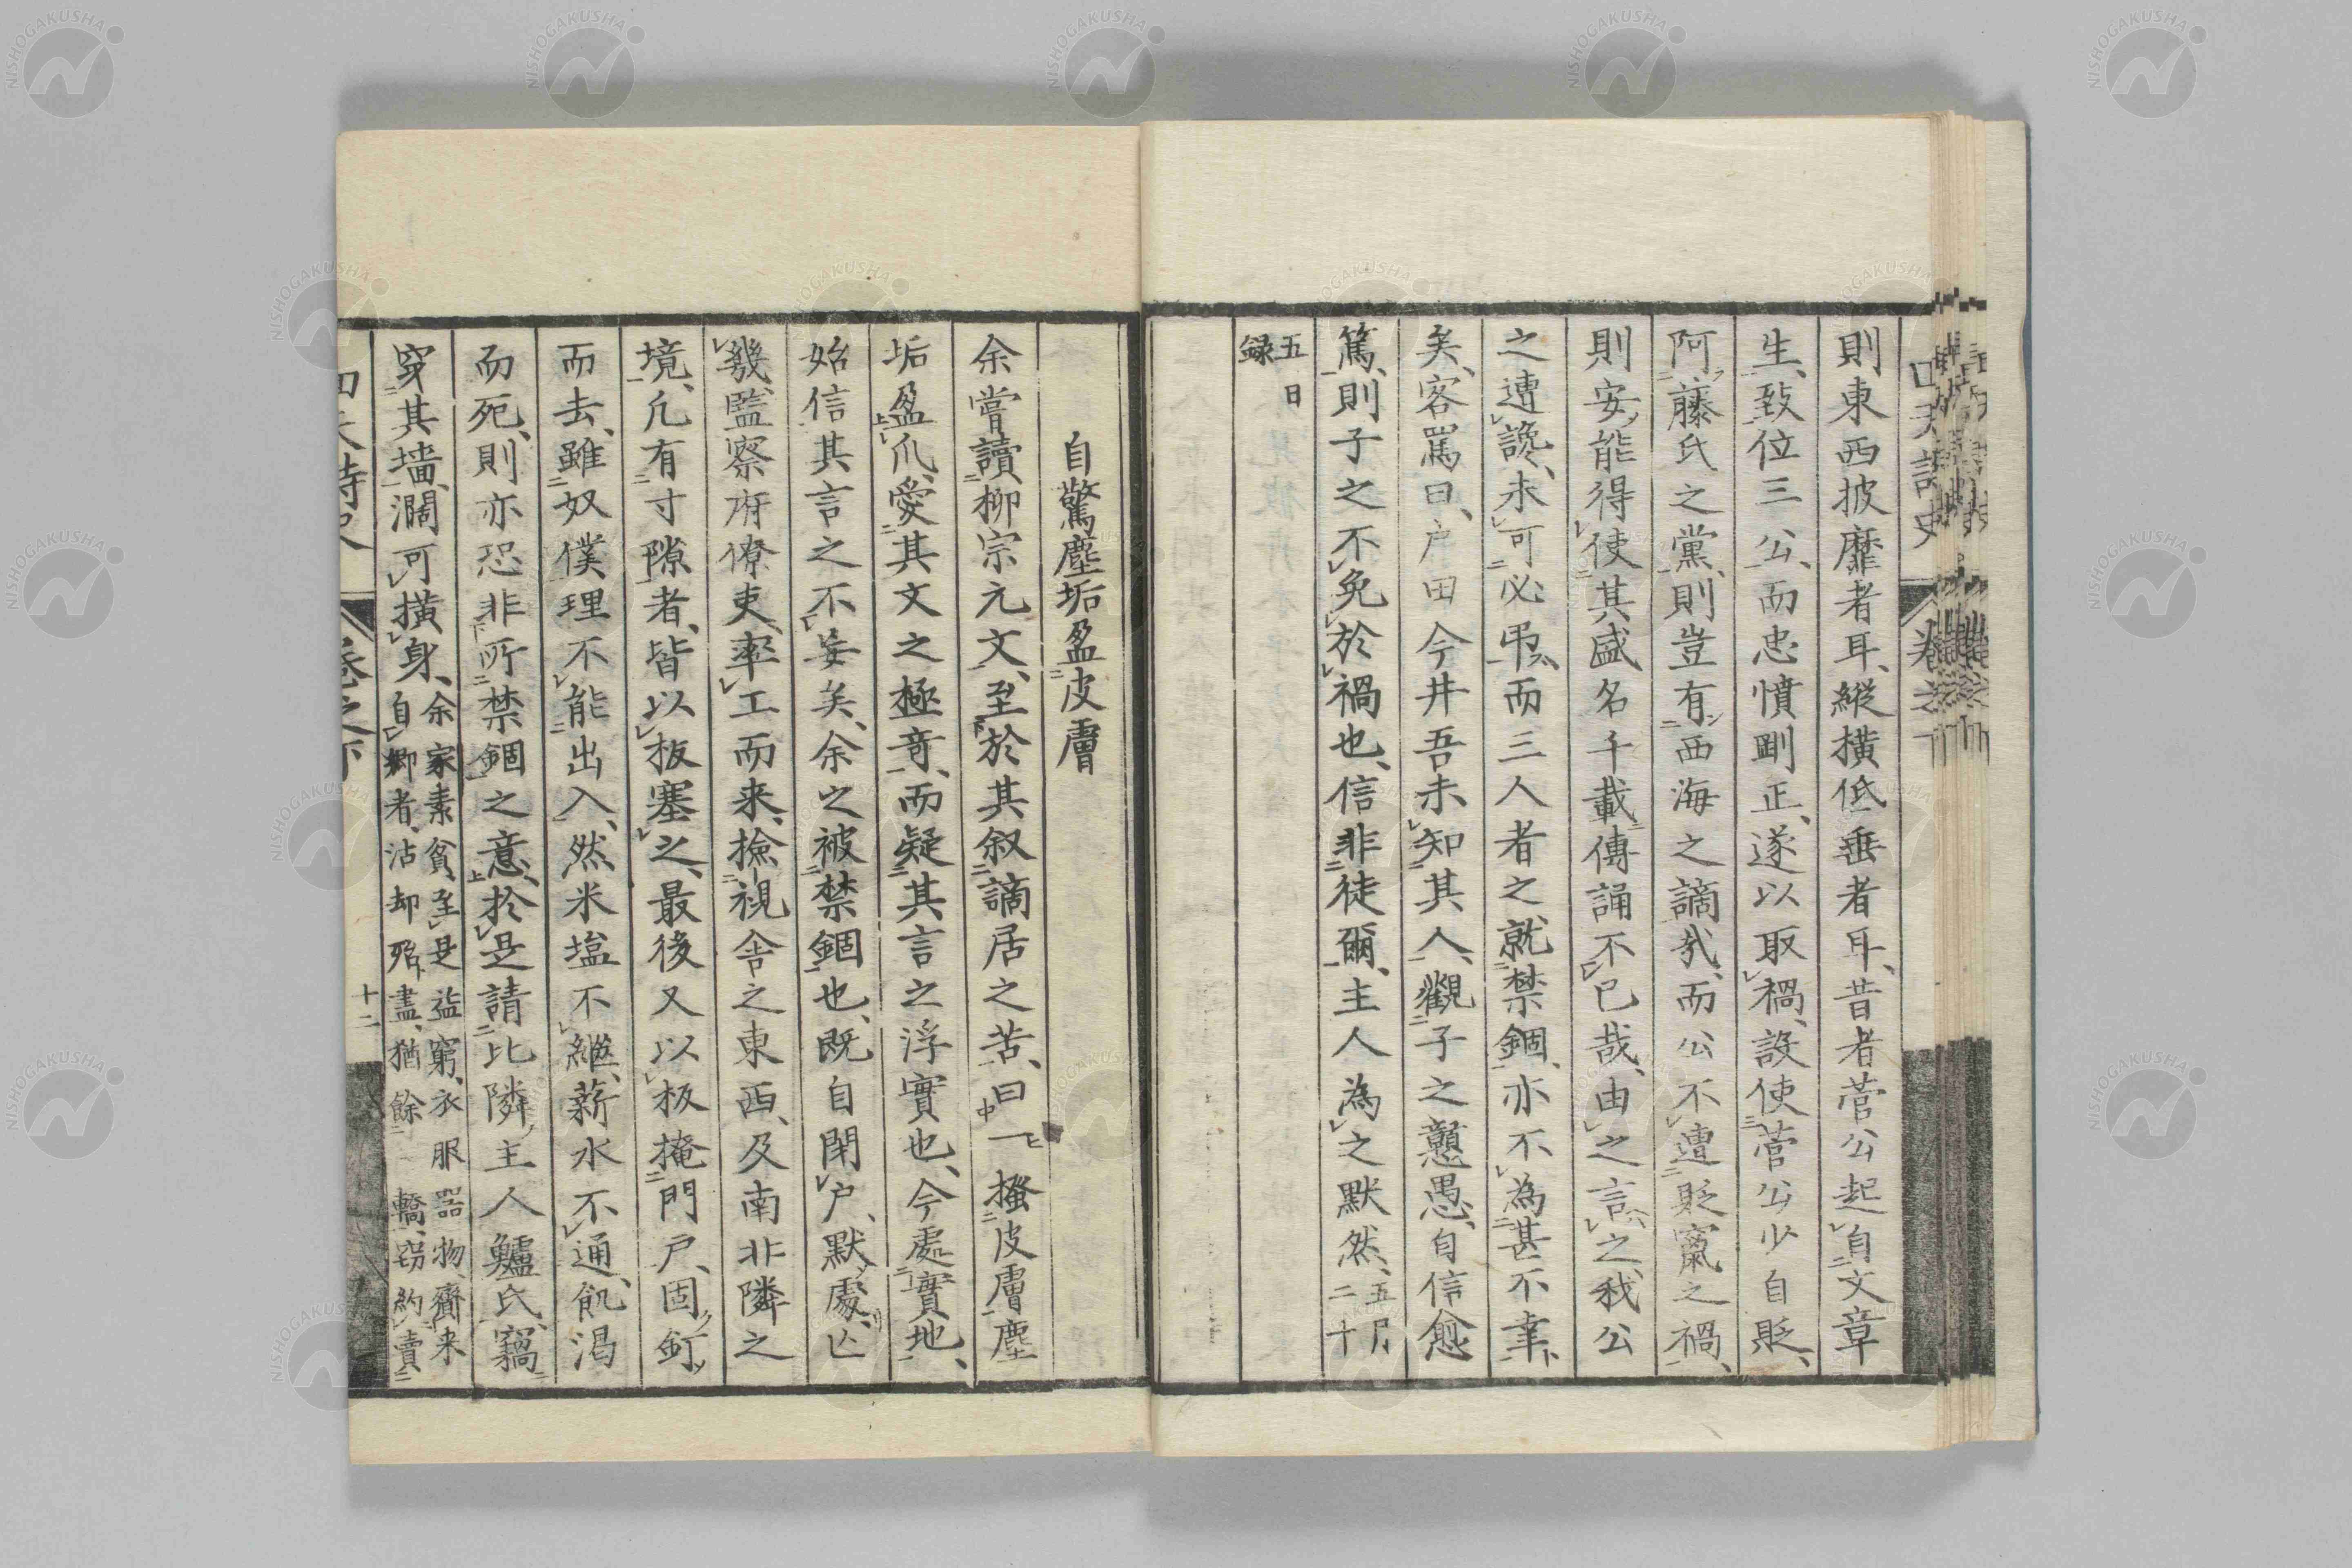 則東西披靡者耳、縱橫低垂者耳、昔者菅公起自文章
生、致位三公、而忠憤剛正、遂以取禍、設使菅公少自貶、
阿藤氏之黨、則豈有西海之謫哉、而公不遭貶竄之禍、
則安能得使其盛名千載傳誦不已哉、由之言之、我公
之遭讒、未可必弔、而三人者之就禁錮、亦不為甚不幸
矣、客罵曰、户田今井吾未知其人、觀子之戇愚、自信愈
篤、則子之不免於禍也、信非徒爾、主人為之默然、五月二十
五日録
自驚塵垢盈皮膚
余嘗讀柳宗元文、至於其叙謫居之苦、曰一搔皮膚塵
垢盈爪、愛其文之極奇、而疑其言之浮實也、今處實地、
始信其言之不妄矣、余之被禁錮也、既自閉户、默處、亡
幾監察府僚吏、率工而来、撿視舎之東西、及南非隣之
境、凡有寸隙者、皆以板塞之、最後又以板掩門戸、固釘
而去、雖奴僕理不能出入、然米塩不繼、薪水不通、飢渇
而死、則亦恐非所禁錮之意、於是請比隣主人鱸氏、竊
穿其墻、濶可橫身、余家素貧、至是益窮、衣服器物、齎来自鄉者、沽却殆盡、猶餘一轎、窃約賣
卷之下
十二